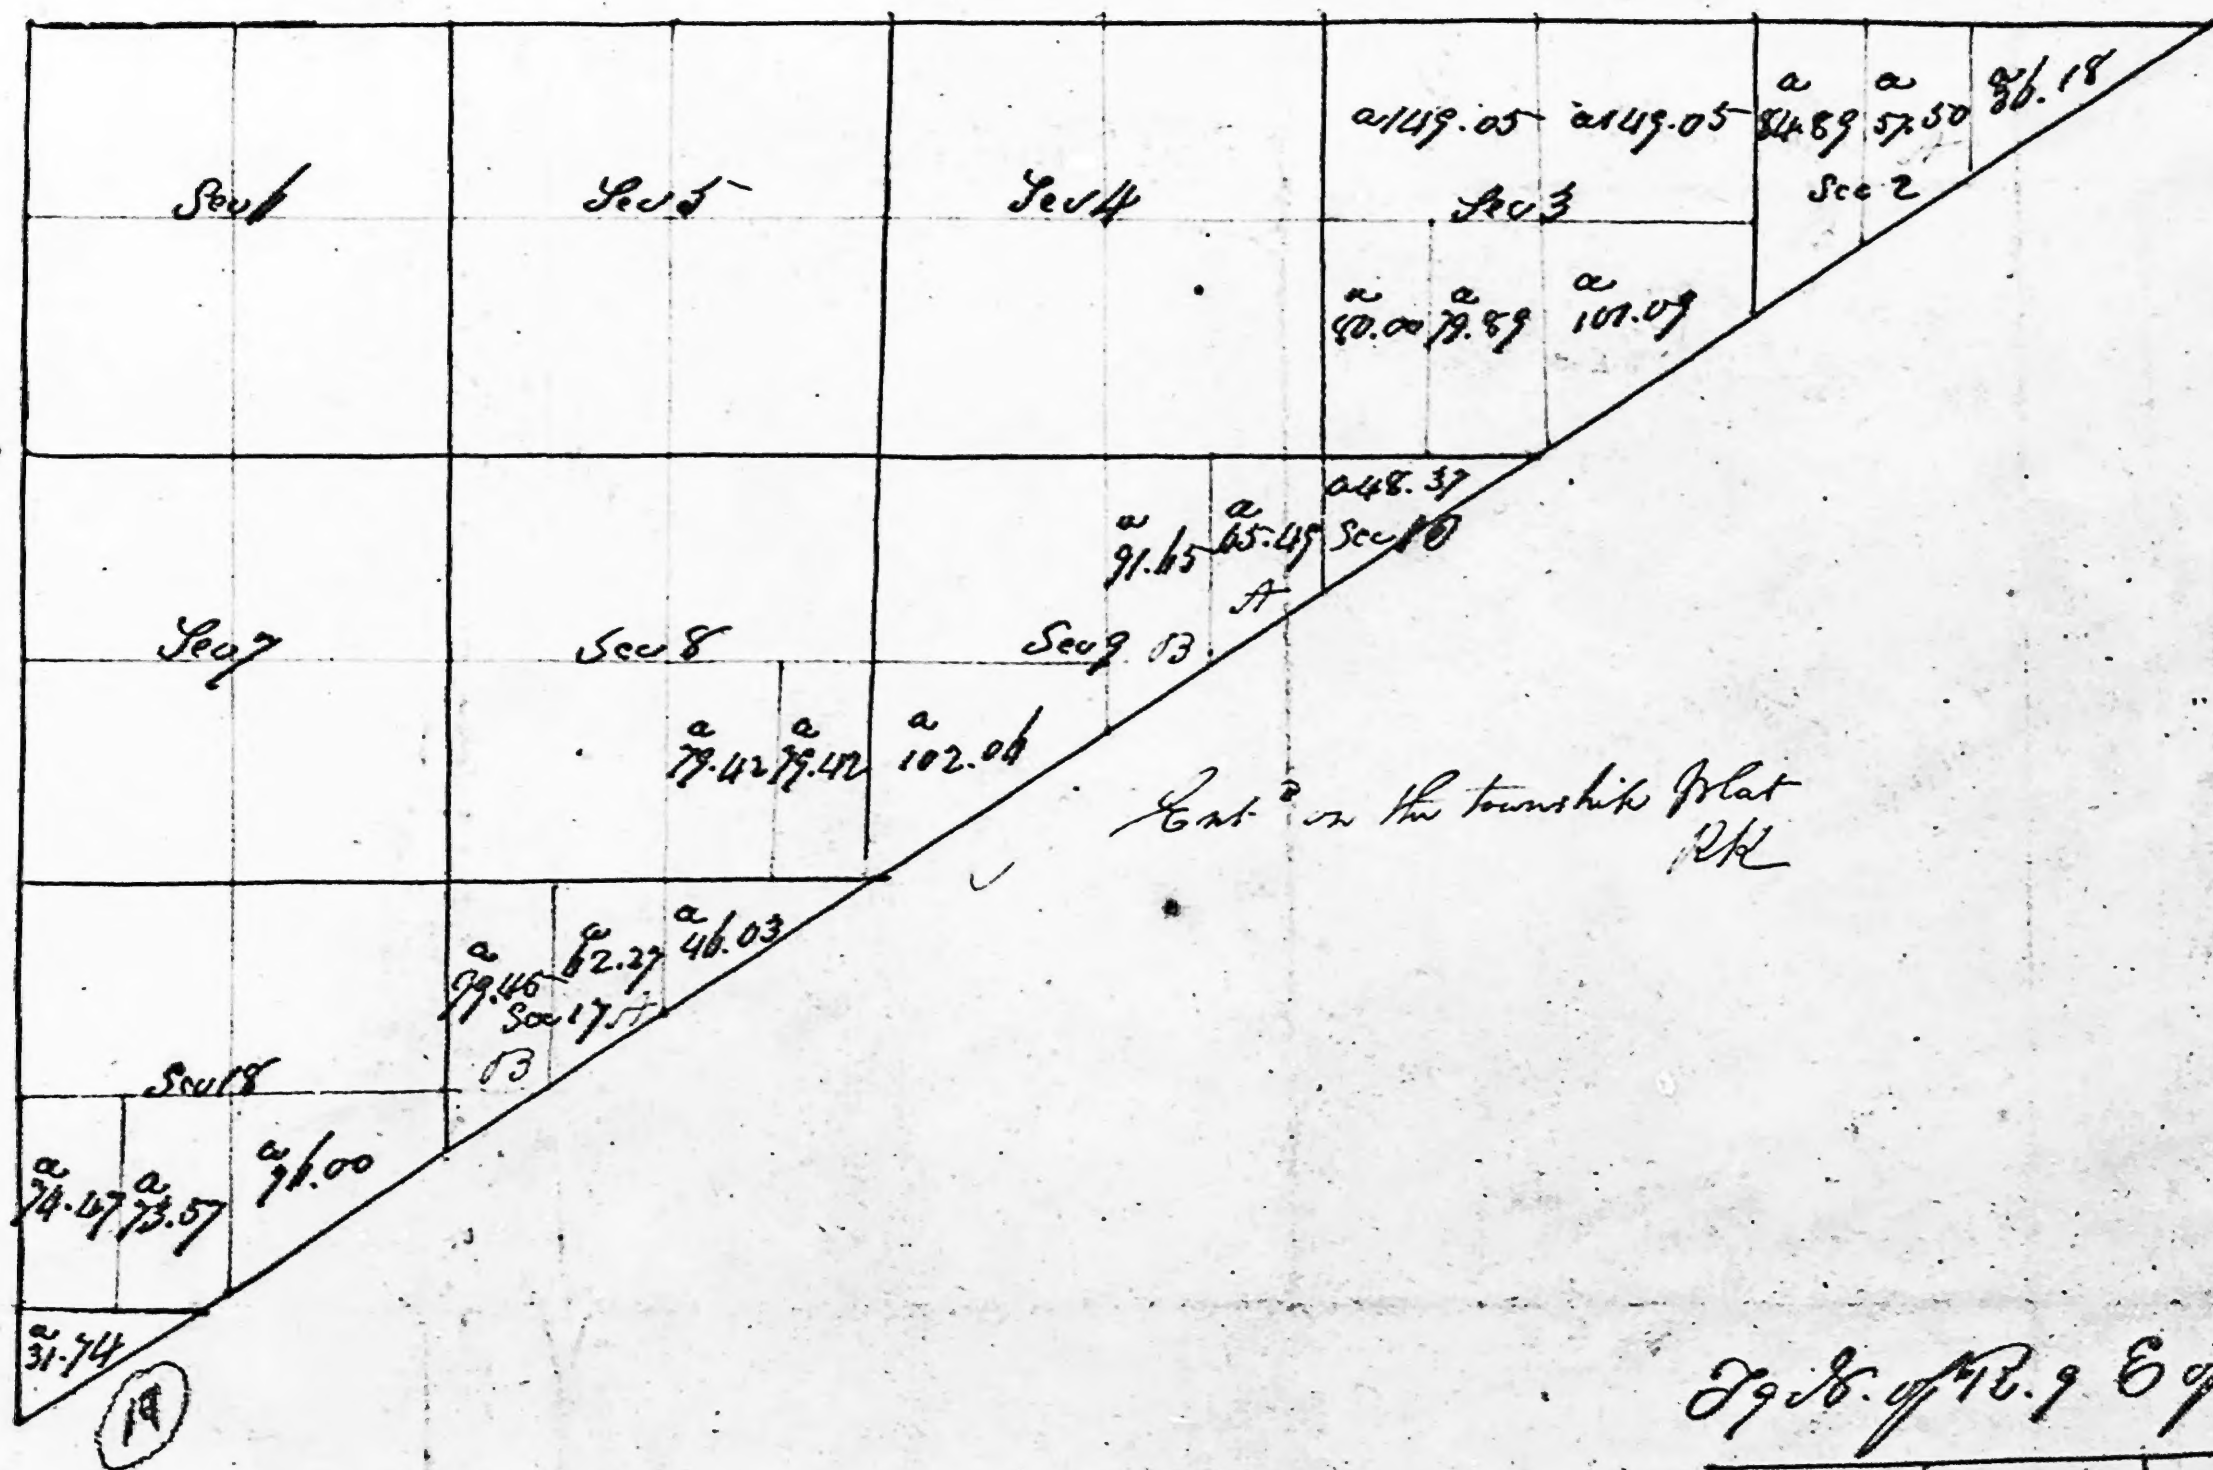 a149.05 a149.05
a 84.89
a 57.50
a 36.18
Sec 6
Sec 5
Sec 4
Sec 3
Sec 2
a 80.00
a 79.89
a 101.09
a48.37
a 91.65
a 65.49
Sec 10
A
Sec 7
Sec 8
Sec 9
B
a 79.42
a 79.42
a 102.06
Ent^d on the township plat
RK
a 79.46
a 62.27
a 46.03
Sec 17
A
B
Sec 18
a 74.47
a 73.57
a 96.00
a 31.74
19
T9 N. of R. 9 E of